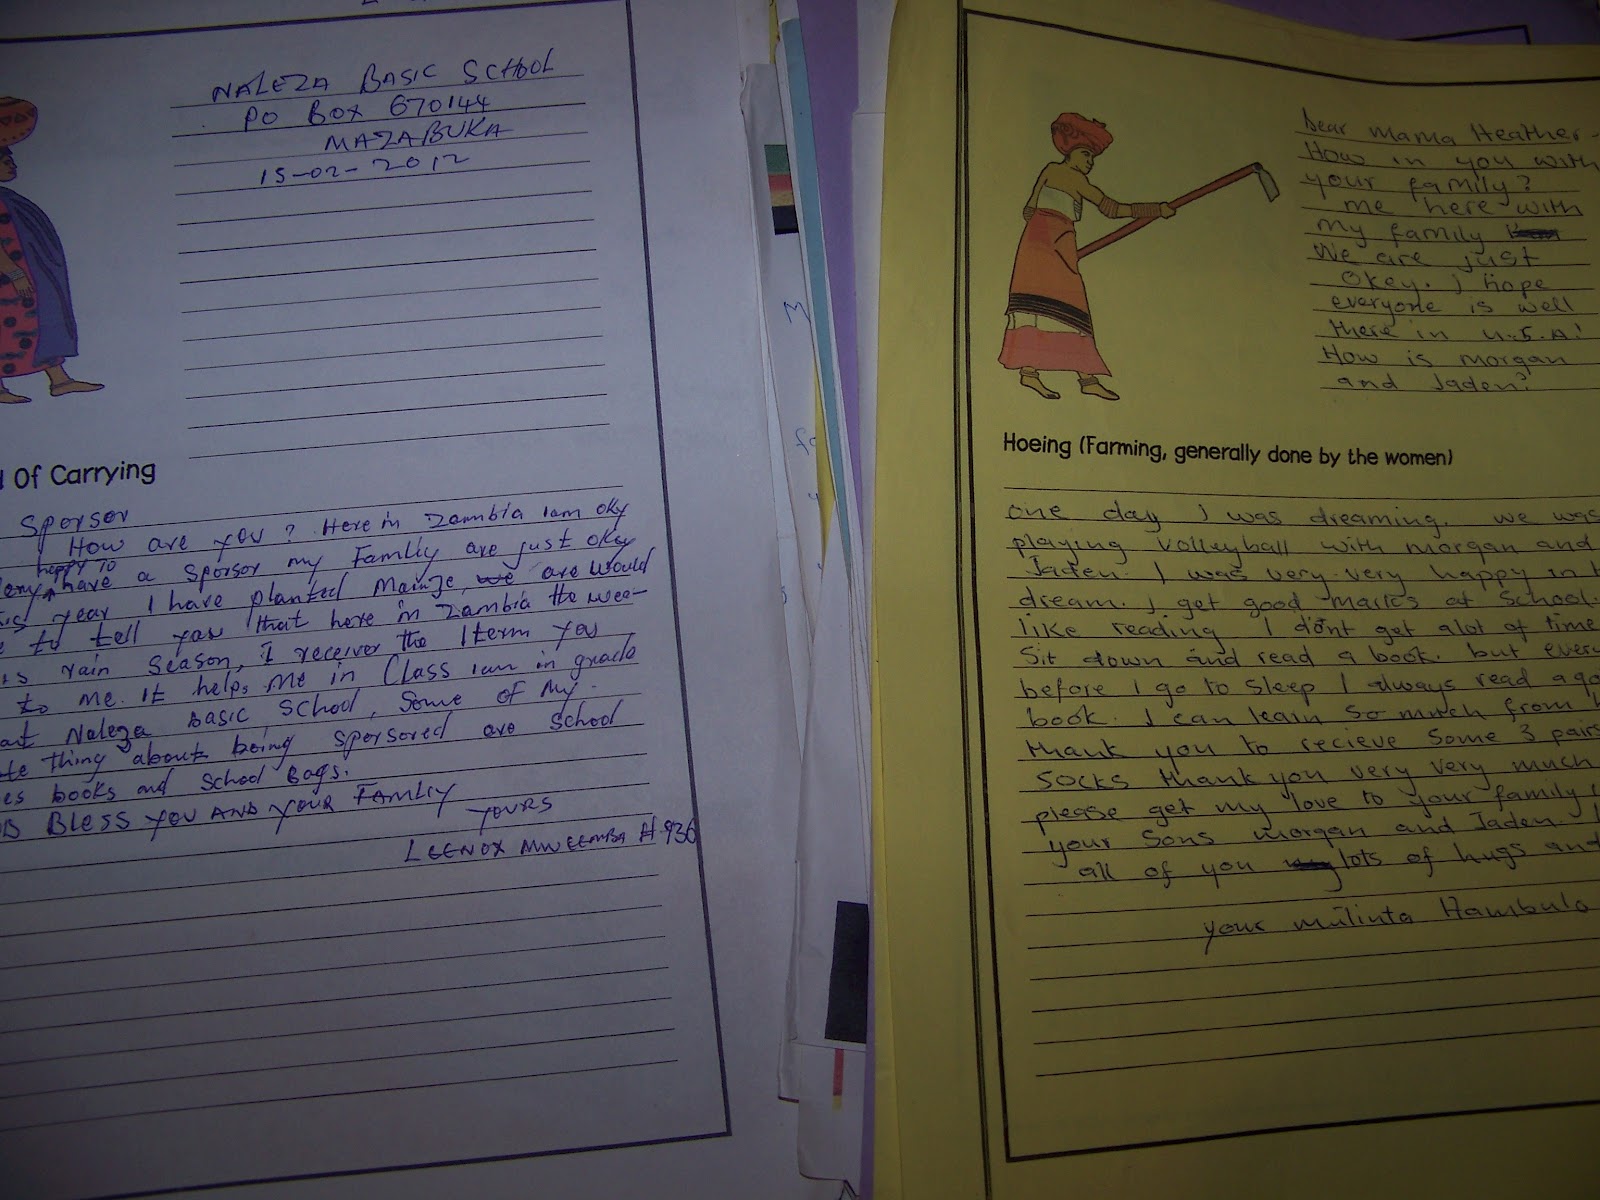 NALEZA BASIC SCHOOL
PO BOX 670144
MAZABUKA
15-02-2012
Of Carrying
Sporsor
How are you? Here in Zambia iam oky
happy to
have a sporsor my Family are just oky
year I have planted Mainze, we are would
to tell you that here in Zambia the wea-
rain Season, I receiver the 1term you
to me. It helps me in Class iam in grade
at Naleza Basic School, Some of my
thing about being sporsored are School
books and School Bags.
BLESS YOU AND YOUR FAMILY
YOURS
LEENOX MWEEMBA # 936
Dear Mama Heather
How in you with
your family?
me here with
my family
We are just
okey. I hope
everyone is well
there in U.S.A!
How is morgan
and Jaden?
Hoeing (Farming, generally done by the women)
one day I was dreaming. we was
playing volleyball with morgan and
Jaden. I was very very happy in
dream. I get good marks at school.
like reading I don't get alot of time
Sit down and read a book. but every
before I go to sleep I always read ago
book. I can learn so much from
thank you to recieve some 3 pairs
socks thank you very very much
please get my love to your family
your sons morgan and Jaden.
all of you lots of hugs and
your mulinta Hambulo